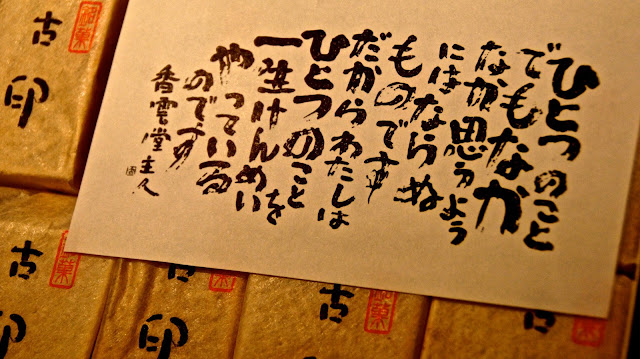 ひとつのこと
でもなか
なか思うよう
にはならぬ
ものです
だからわたしは
ひとつのことを
一生けんめい
やっている
のです
香雲堂主人
銘菓
古印
銘菓
古印
古印
銘菓
古